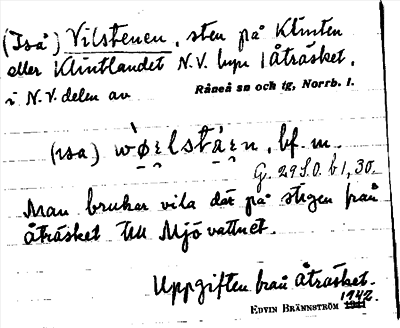 (Iså) Vilstenen, sten på Klinten
eller Klintlandet N.V. byn Åträsket,
i N.V. delen av Råneå sn och tg, Norrb. l.
bf. m.
G. 29 S.O. b 1, 30.
Man brukar vila där på stigen från
Åträsket till Mjövattnet.
Uppgiften från Åträsket.
EDVIN BRÄNNSTRÖM 1942.